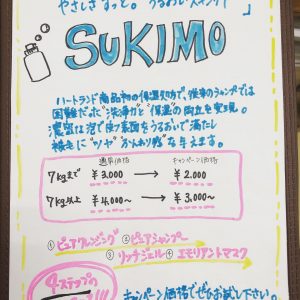 やさしさずっと。うるおいスキンケア」
SUKIMO
ハートランド商品初の保湿処方で、従来のシャンプーでは
困難だった"洗浄力"と"保湿"の両立を実現。
濃密な泡で皮フ表面をうるおいで満たし
被毛に"ツヤ""ふんわり感"を与えます。
通常価格 キャンペーン価格
7kgまで ¥3,000 → ¥2,000
7kg以上 ¥4,000～ → ¥3,000～
①ピュアクレンジング ②ピュアシャンプー
③リッチジェル ④エモリアントマスク
4ステップの
キャンペーン価格でぜひお試し下さい。